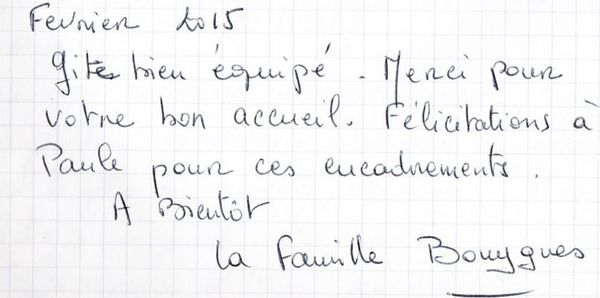 Fevrier 2015
Gite bien équipé. Merci pour
votre bon accueil. Félicitations à
Paule pour ces encadrements.
A Bientôt
la Famille Bouygues